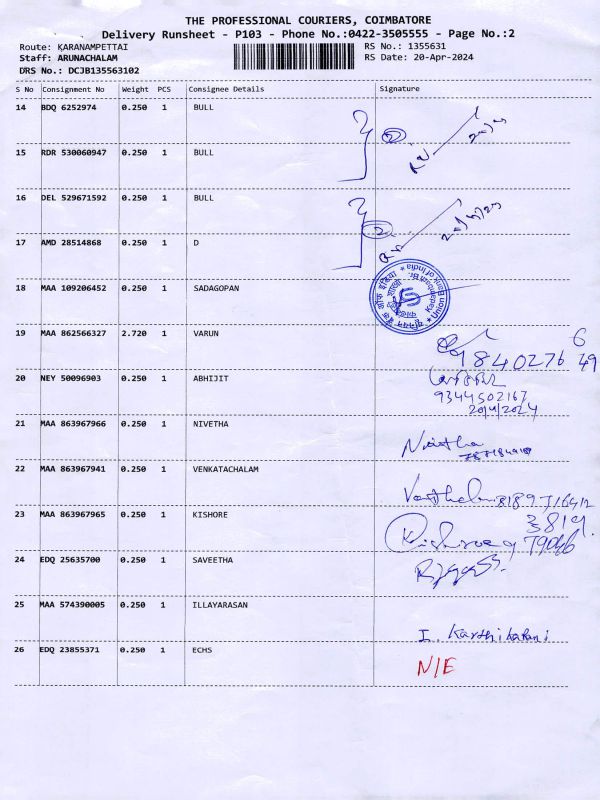 THE PROFESSIONAL COURIERS, COIMBATORE
Delivery Runsheet - P103 - Phone No.:0422-3505555 - Page No.:2
Route: KARANAMPETTAI RS No.: 1355631
Staff: ARUNACHALAM RS Date: 20-Apr-2024
DRS No.: DCJB135563102
S No Consignment No Weight PCS Consignee Details Signature
14 BDQ 6252974 0.250 1 BULL
15 RDR 530060947 0.250 1 BULL
16 DEL 529671592 0.250 1 BULL
17 AMD 28514868 0.250 1 D
18 MAA 109206452 0.250 1 SADAGOPAN
Union Bank of India
19 MAA 862566327 2.720 1 VARUN
20 NEY 50096903 0.250 1 ABHIJIT
9344502167
20/4/2024
21 MAA 863967966 0.250 1 NIVETHA
Nivetha
22 MAA 863967941 0.250 1 VENKATACHALAM
23 MAA 863967965 0.250 1 KISHORE
24 EDQ 25635700 0.250 1 SAVEETHA
25 MAA 574390005 0.250 1 ILLAYARASAN
26 EDQ 23855371 0.250 1 ECHS
N/E